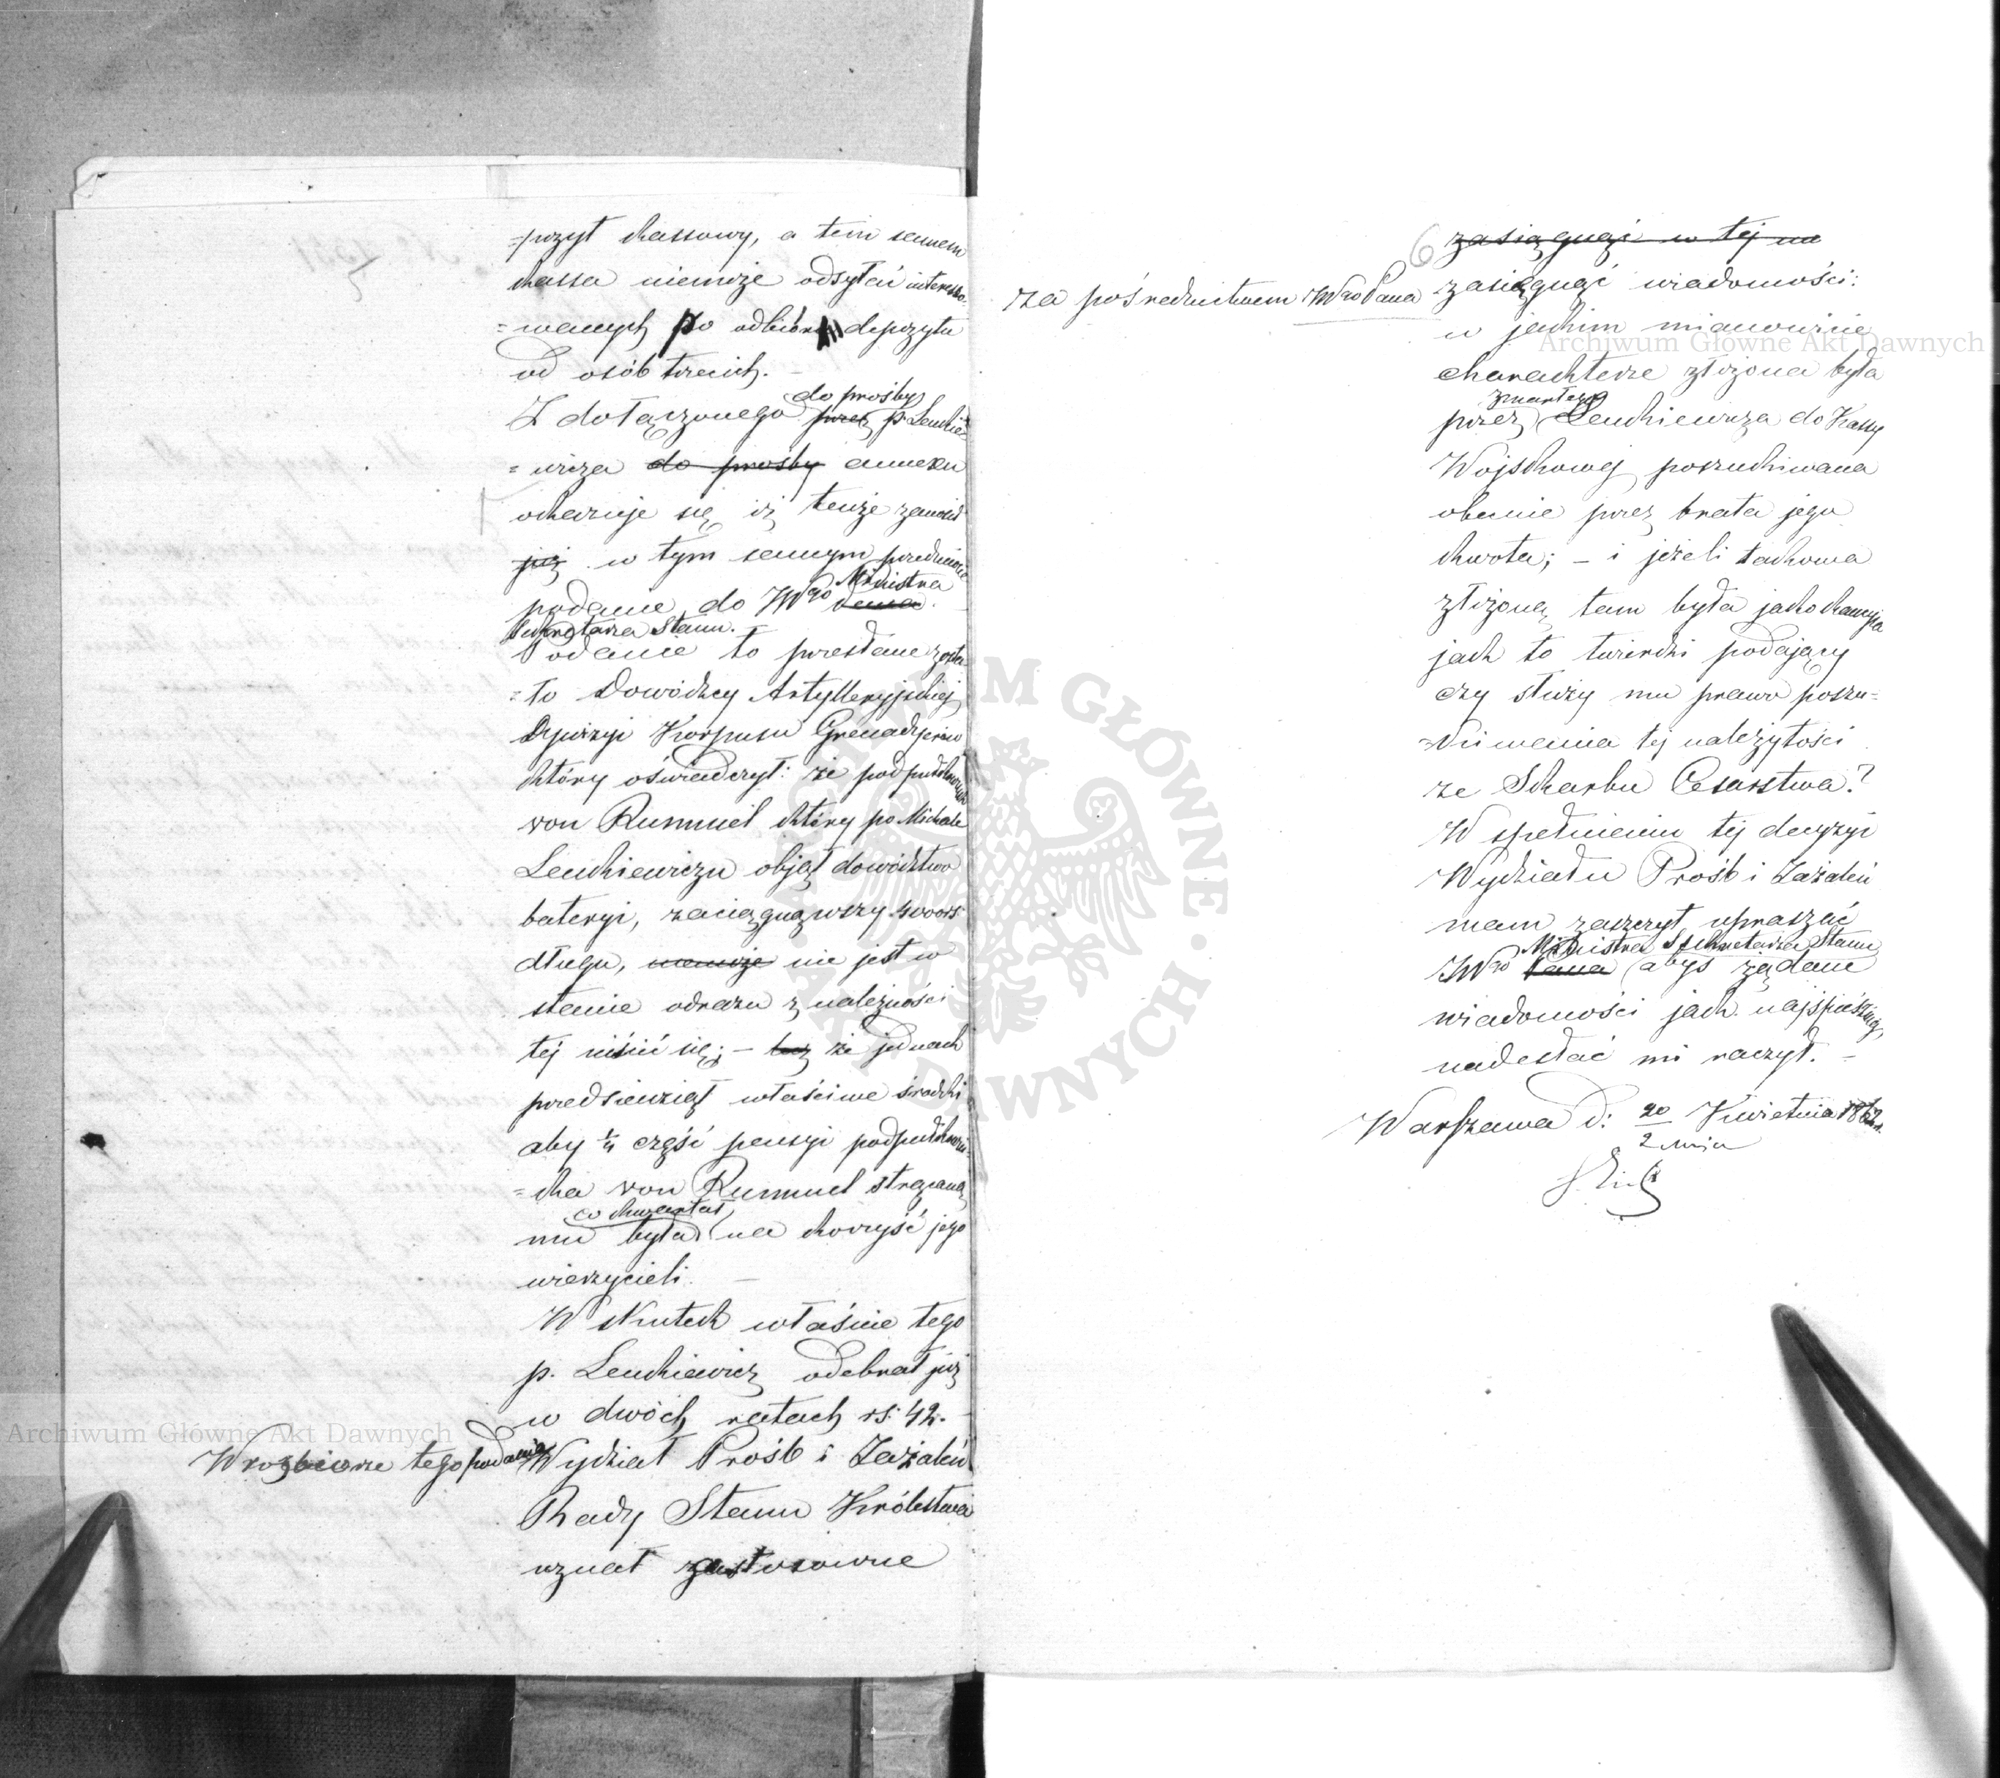 =pozyt kassowy, a tem samem
kassa niemoże odsyłać interesso-
=wanych po odbiór depozytu
od osób trzecich. —
do prośby
Z dołączonego przez p. Lenkie-
=wicza do prośby annexu
okazuje się iż tenże zanosił
już w tym samym przedmiocie
podanie do JWgo Pana Ministra
Sekretarza Stanu.
Podanie to przesłane zosta-
=ło Dowódzcy Artylleryjskiej
Dywizyi Korpusu Grenadyerów
który oświadczył: że podpułkownik
von Rummel który po Michale
Lenkiewiczu objął dowództwo
bateryi, zaciągnąwszy 4000 rs.
długu, niemoże nie jest w
stanie odrazu z należności
tej uiścić się; — lecz że jednak
przedsięwziął właściwe środki
aby ¼ część pensyi podpułkowni-
=ka von Rummel strącaną
co kwartał
mu była na korzyść jego
wierzycieli. —
W skutek właśnie tego
p. Lenkiewicz odebrał już
w dwóch ratach rs. 42. —
W rozbiorze tego podania
Wydział Próśb i Zażaleń
Rady Stanu Królestwa
uznał zastosowne
6
zasięgnąć w tej
za pośrednictwem JWgo Pana
zasięgnąć wiadomości:
w jakim mianowicie
charakterze złożona była
zmarłego
przez Lenkiewicza do Kassy
Wojskowej poszukiwana
obecnie przez brata jego
kwota; — i jeżeli takowa
złożoną tam była jako kaucyja
jak to twierdzi podający
czy służy mu prawo poszu-
=kiwania tej należytości
ze Skarbu Cesarstwa?
W spełnieniu tej decyzyi
Wydziału Próśb i Zażaleń
mam zaszczyt upraszać
Ministra Sekretarza Stanu
JWgo Pana abyś żądane
wiadomości jak najspieszniej
nadesłać mi raczył. —
Warszawa d: 20 Kwietnia 1862 r.
2 Maja
Archiwum Główne Akt Dawnych
Archiwum Główne Akt Dawnych
ARCHIWUM GŁÓWNE AKT DAWNYCH